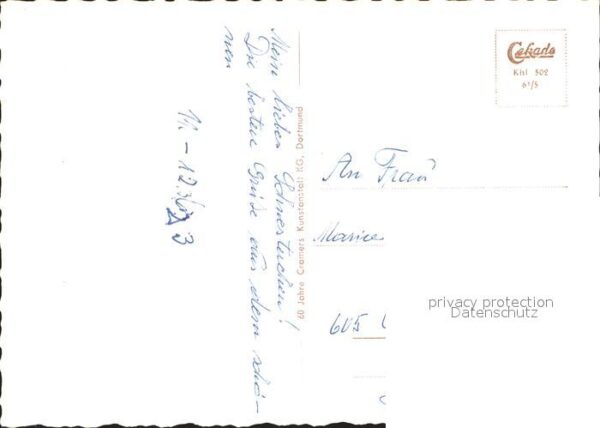 Mein liebes Schwesterchen!
Die besten Grüße aus dem schö-
nen
11. - 12.
60 Jahre Cramers Kunstanstalt KG, Dortmund
Cekade
Khl 502
61/5
An Frau
605
privacy protection
Datenschutz